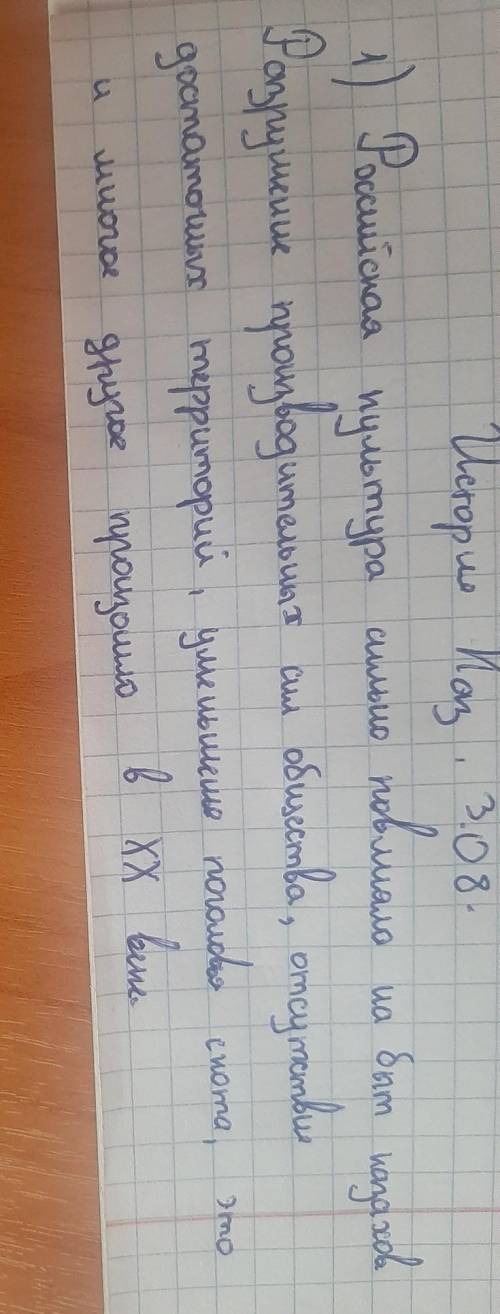 История Каз. 3.08.
1) Российская культура сильно повлияло на быт казахов
Разрушение производительных сил общества, отсутствие
достаточных территорий, уменьшено поголовье скота, это
и многое другое произошло в XX веке